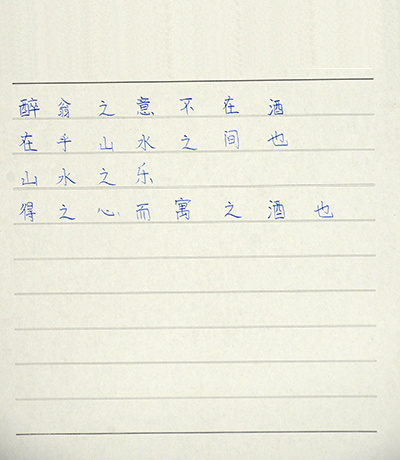 醉翁之意不在酒
在乎山水之间也
山水之乐
得之心而寓之酒也